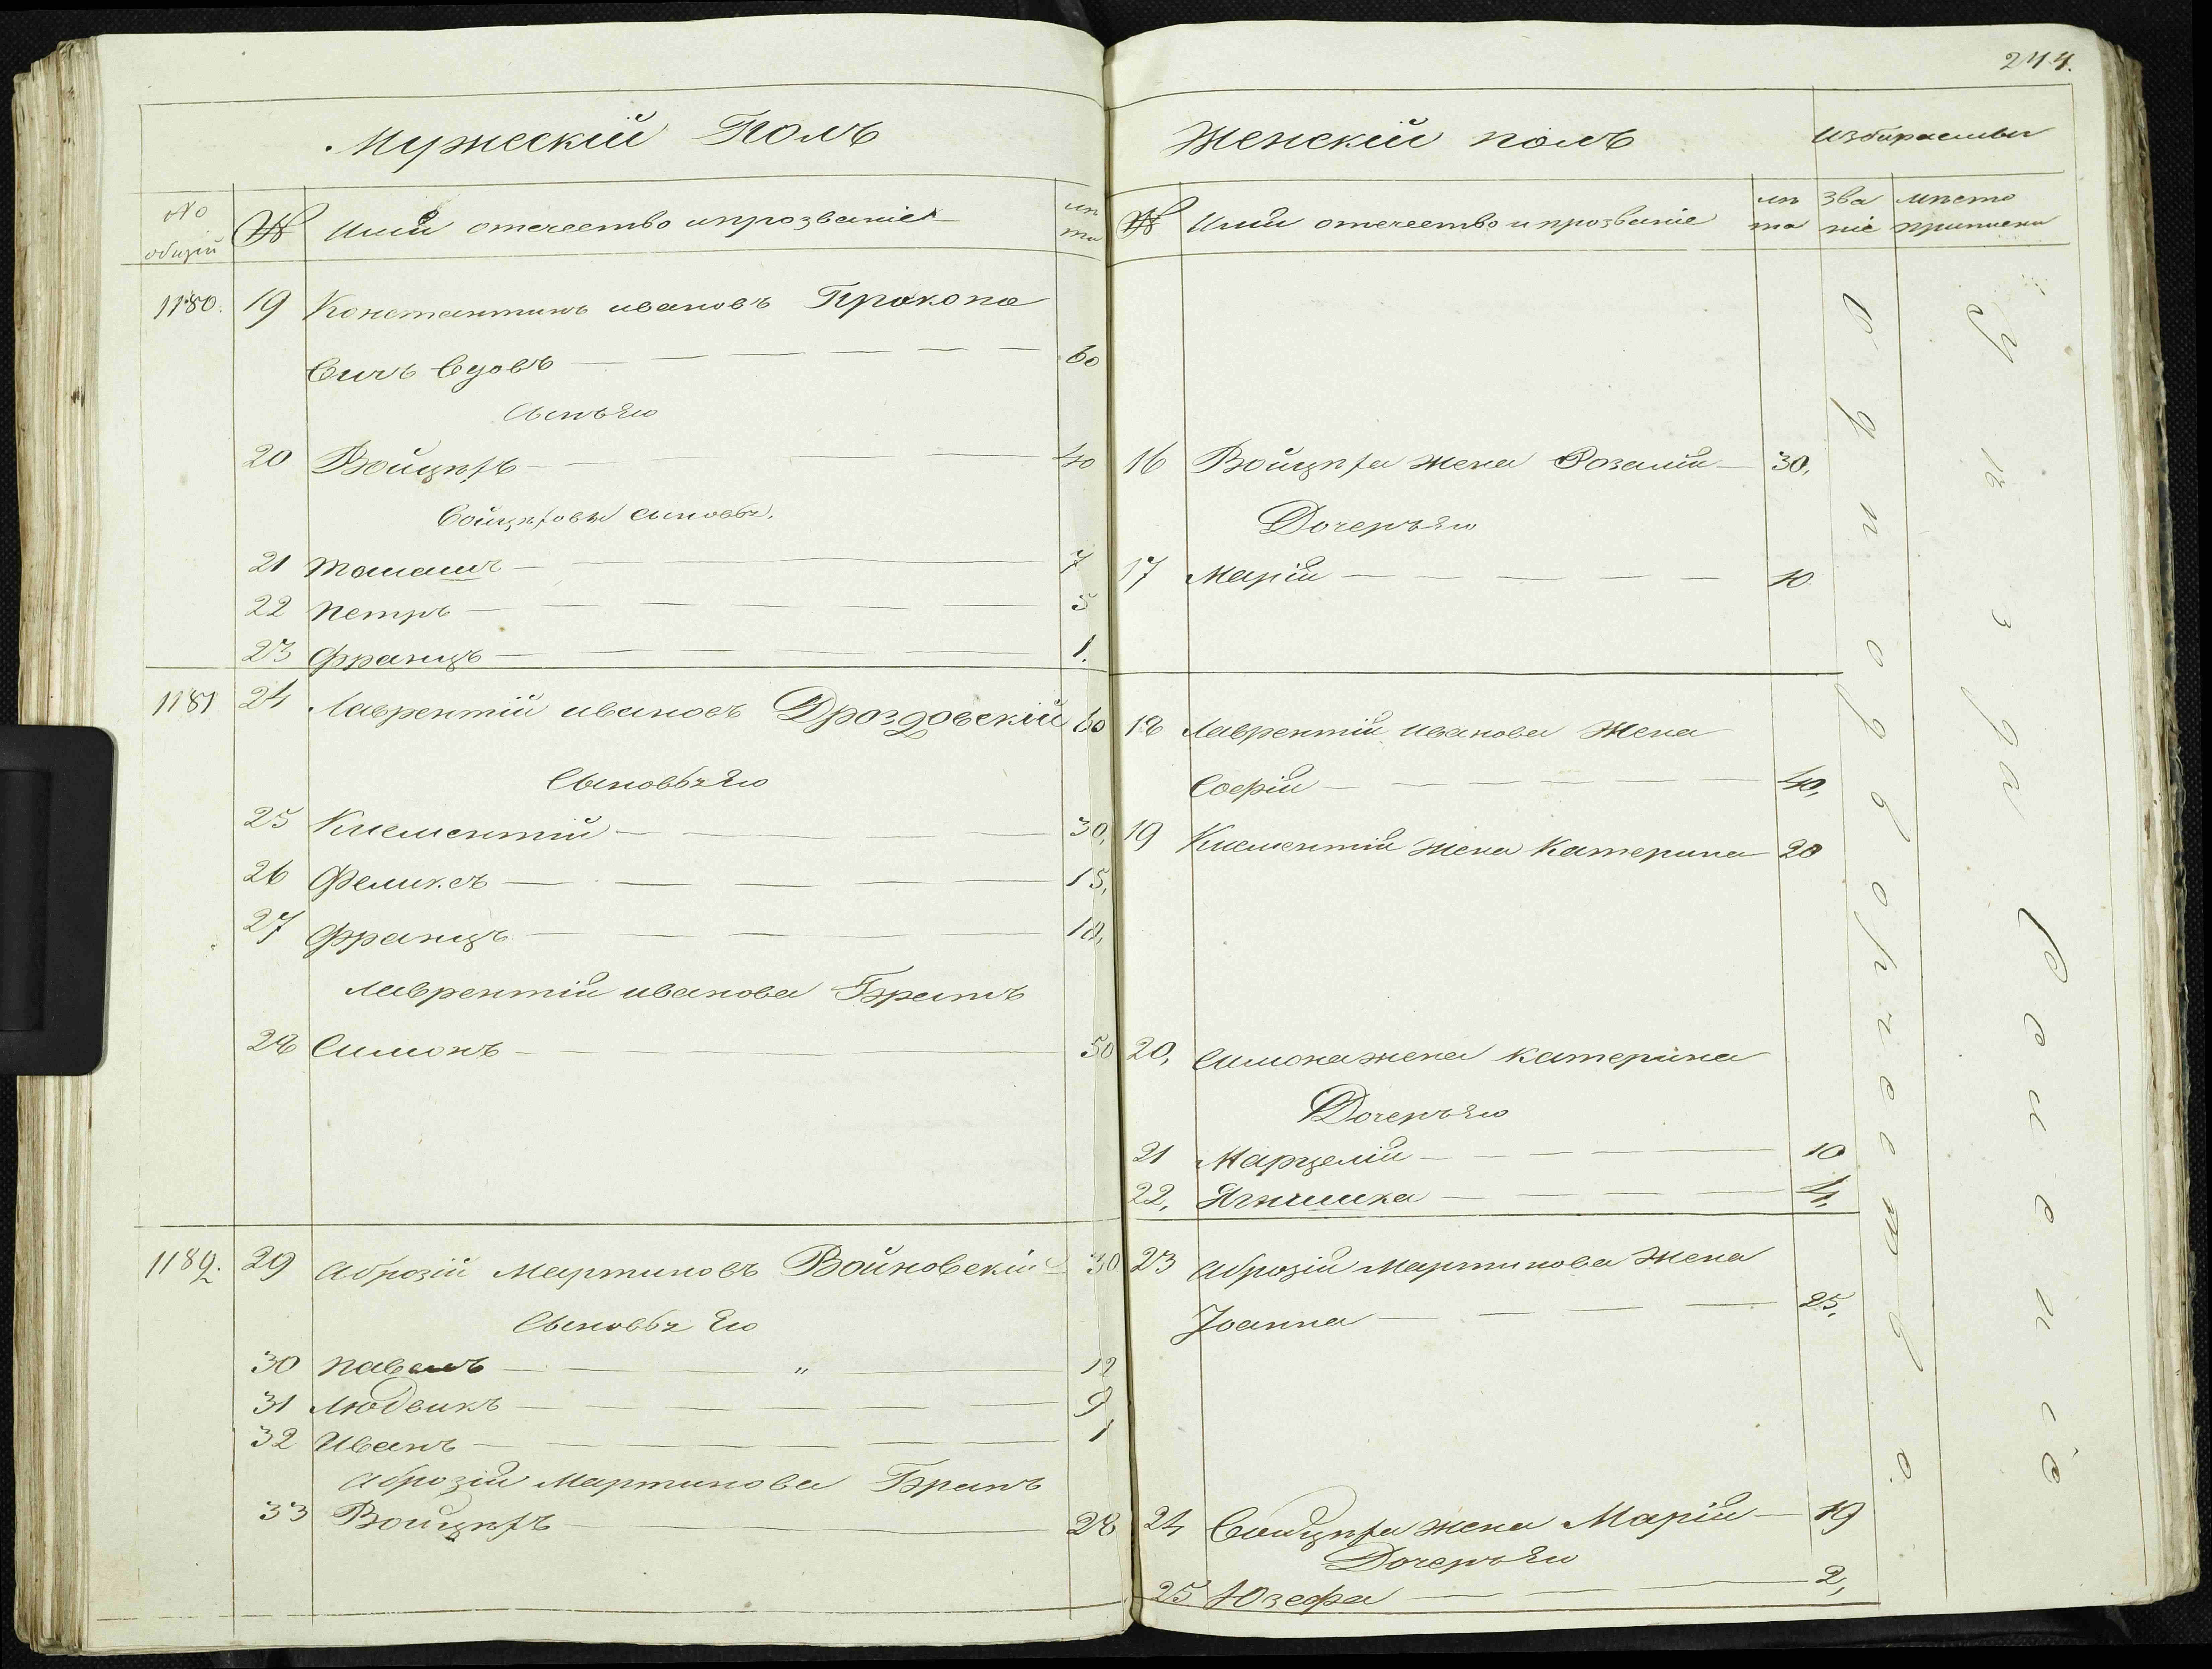 244.
Мужескій Полъ
№ общій
№
Имя отечество и прозваніе
лѣта
1180. 19 Константинъ ивановъ Прокопо
вичъ вдовъ — 60
Сынъ Его
20 Войцѣхъ — 40
Войцѣховы сыновья,
21 Томашъ — 7
22 Петръ — 5
23 Францъ — 1.
1181 24 Лаврентій ивановъ Дроздовскій 60
Сыновья Его
25 Клементій — 30,
26 Феликсъ — 15,
27 Францъ — 10,
Лаврентія иванова Братъ
28 Симонъ — 50
1182. 29 Аброзій Мартиновъ Войновскій 30
Сыновья Его
30 Павелъ — " — 12
31 Людвикъ — 9
32 Иванъ — 1
Аброзія Мартинова Братъ
33 Войцѣхъ — 28
Женскій полъ
№
Имя отечество и прозваніе
лѣта
16 Войцѣха жена Розалія — 30,
Дочерь Его
17 Марія — 10
18 Лаврентія Иванова Жена
Софія — 40,
19 Клементія жена Катерина 20
20, Симона жена Катерина
Дочерь Его
21 Марцелія — 10
22, Ягнишка — 4,
23 Аброзія Мартинова Жена
Іоанна — 25,
24 Войцѣха жена Марія — 19
Дочерь Его
25 Юзефа — 2,
Званіе
мѣсто приписки
Однодворчество
Уѣзда